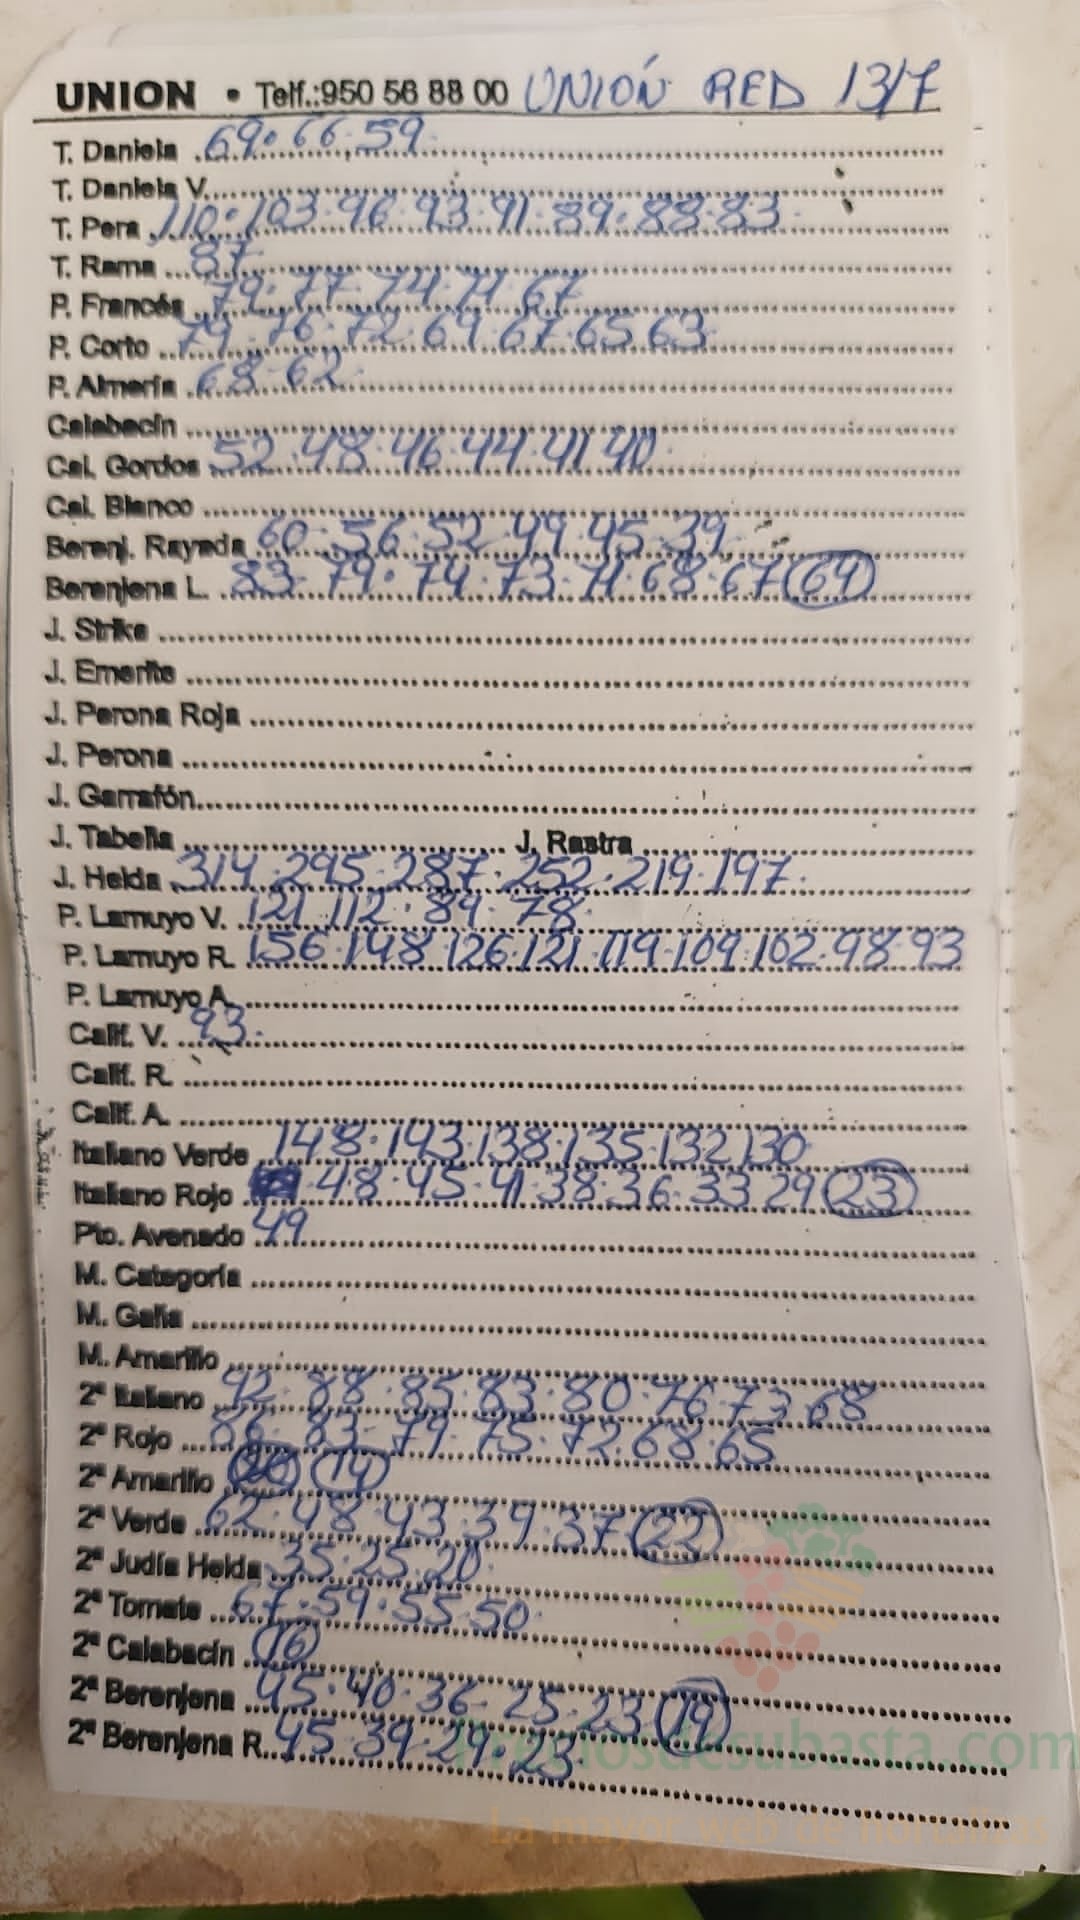 UNION • Telf.:950 56 88 00 UNIÓN RED 13/7
T. Daniela 69 · 66 · 59
T. Daniela V.
T. Pera 110 · 103 · 96 · 93 · 91 · 89 · 88 · 83
T. Rama 87
P. Francés 79 · 77 · 74 · 71 · 67
P. Corto 79 · 76 · 72 · 69 · 67 · 65 63
P. Almería 68 · 62
Calabacín
Cal. Gordos 52 · 48 · 46 · 44 · 41 40
Cal. Blanco
Berenj. Rayada 60 · 56 · 52 · 49 · 45 · 39
Berenjena L. 83 · 79 · 74 · 73 · 71 · 68 · 67 (64)
J. Strike
J. Emerite
J. Perona Roja
J. Perona
J. Garrafón
J. Tabella J. Rastra
J. Helda 314 · 295 · 287 · 252 · 219 · 197
P. Lamuyo V. 121 112 · 89 · 78
P. Lamuyo R. 156 · 148 · 126 · 121 · 119 · 109 · 102 · 98 · 93
P. Lamuyo A.
Calif. V. 93
Calif. R.
Calif. A.
Italiano Verde 148 · 143 · 138 · 135 · 132 130
Italiano Rojo 48 · 45 · 41 · 38 · 36 · 33 29 (23)
Pto. Avenado 49
M. Categoría
M. Galia
M. Amarillo
2ª Italiano 92 · 88 · 85 · 83 · 80 · 76 · 73 68
2ª Rojo 86 · 83 · 79 · 75 · 72 · 68 · 65
2ª Amarillo (14)
2ª Verde 62 · 48 · 43 · 39 · 37 (22)
2ª Judía Helda 35 · 25 · 20
2ª Tomate 67 · 59 · 55 · 50
2ª Calabacín (16)
2ª Berenjena 45 · 40 · 36 · 25 · 23 (19)
2ª Berenjena R. 45 · 39 · 29 · 23
Preciosdesubasta.com
La mayor web de hortalizas